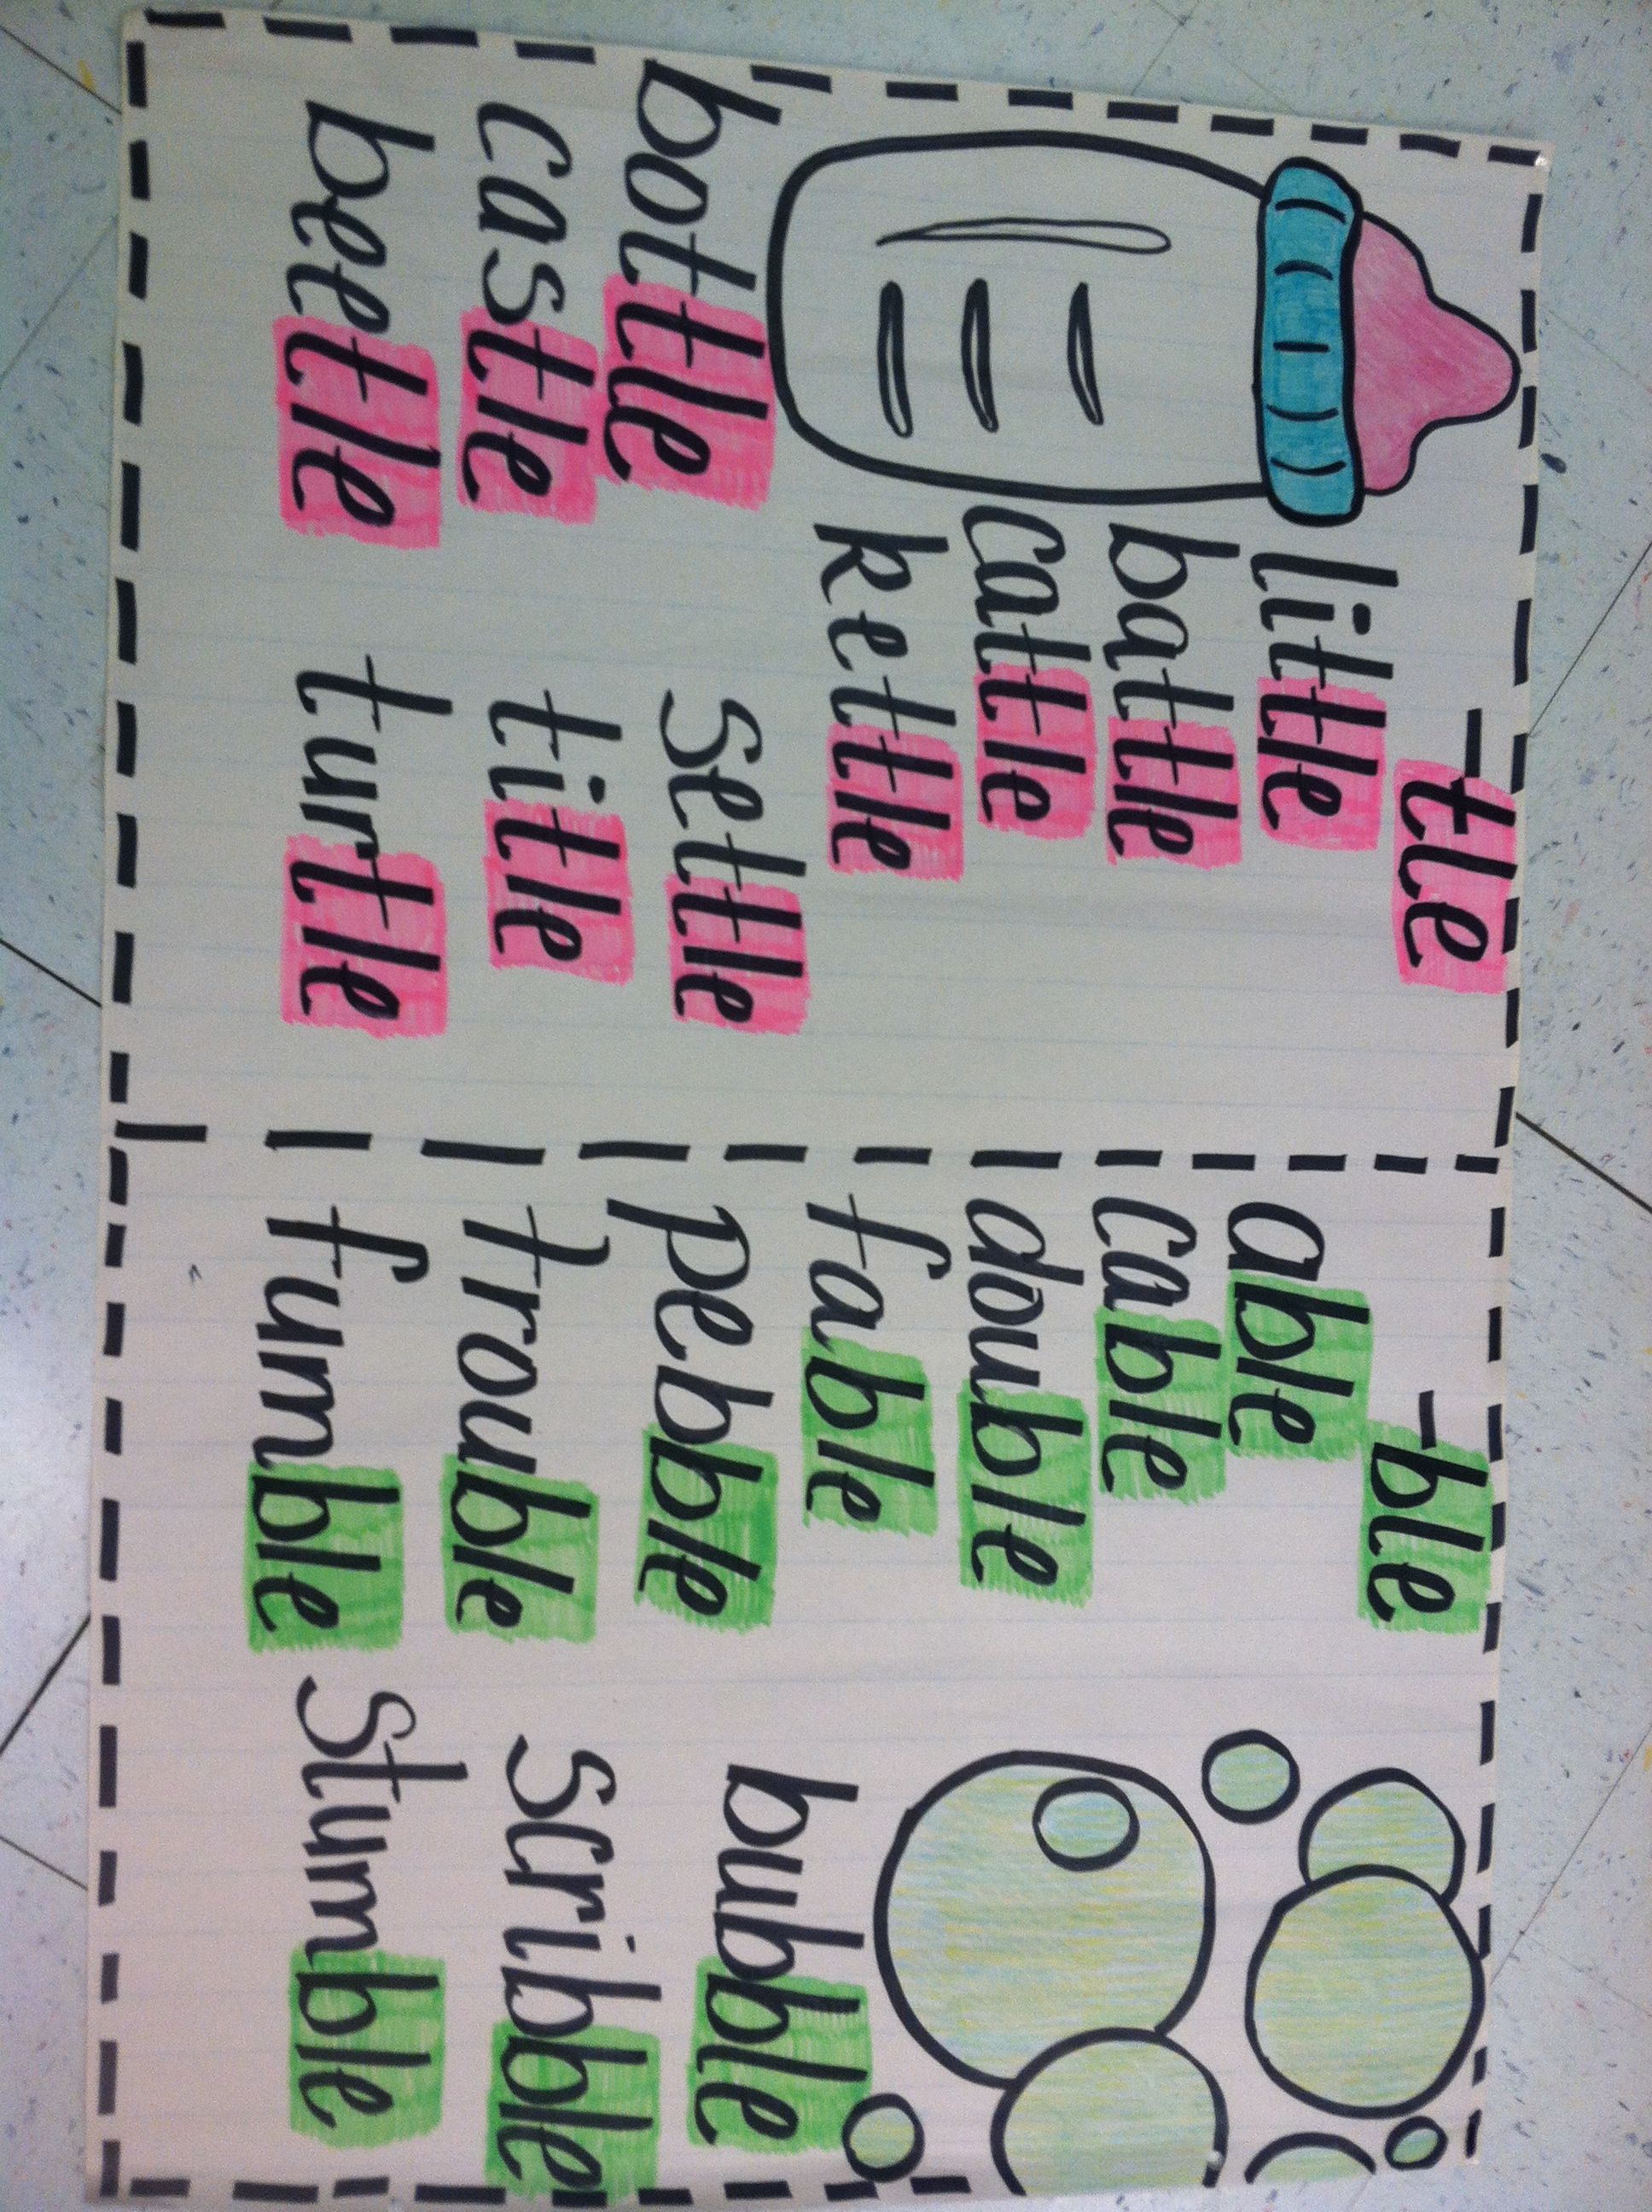 -tle
little
battle
cattle
kettle
bottle settle
castle title
beetle turtle
-ble
able
cable
double
fable
pebble bubble
trouble scribble
fumble stumble